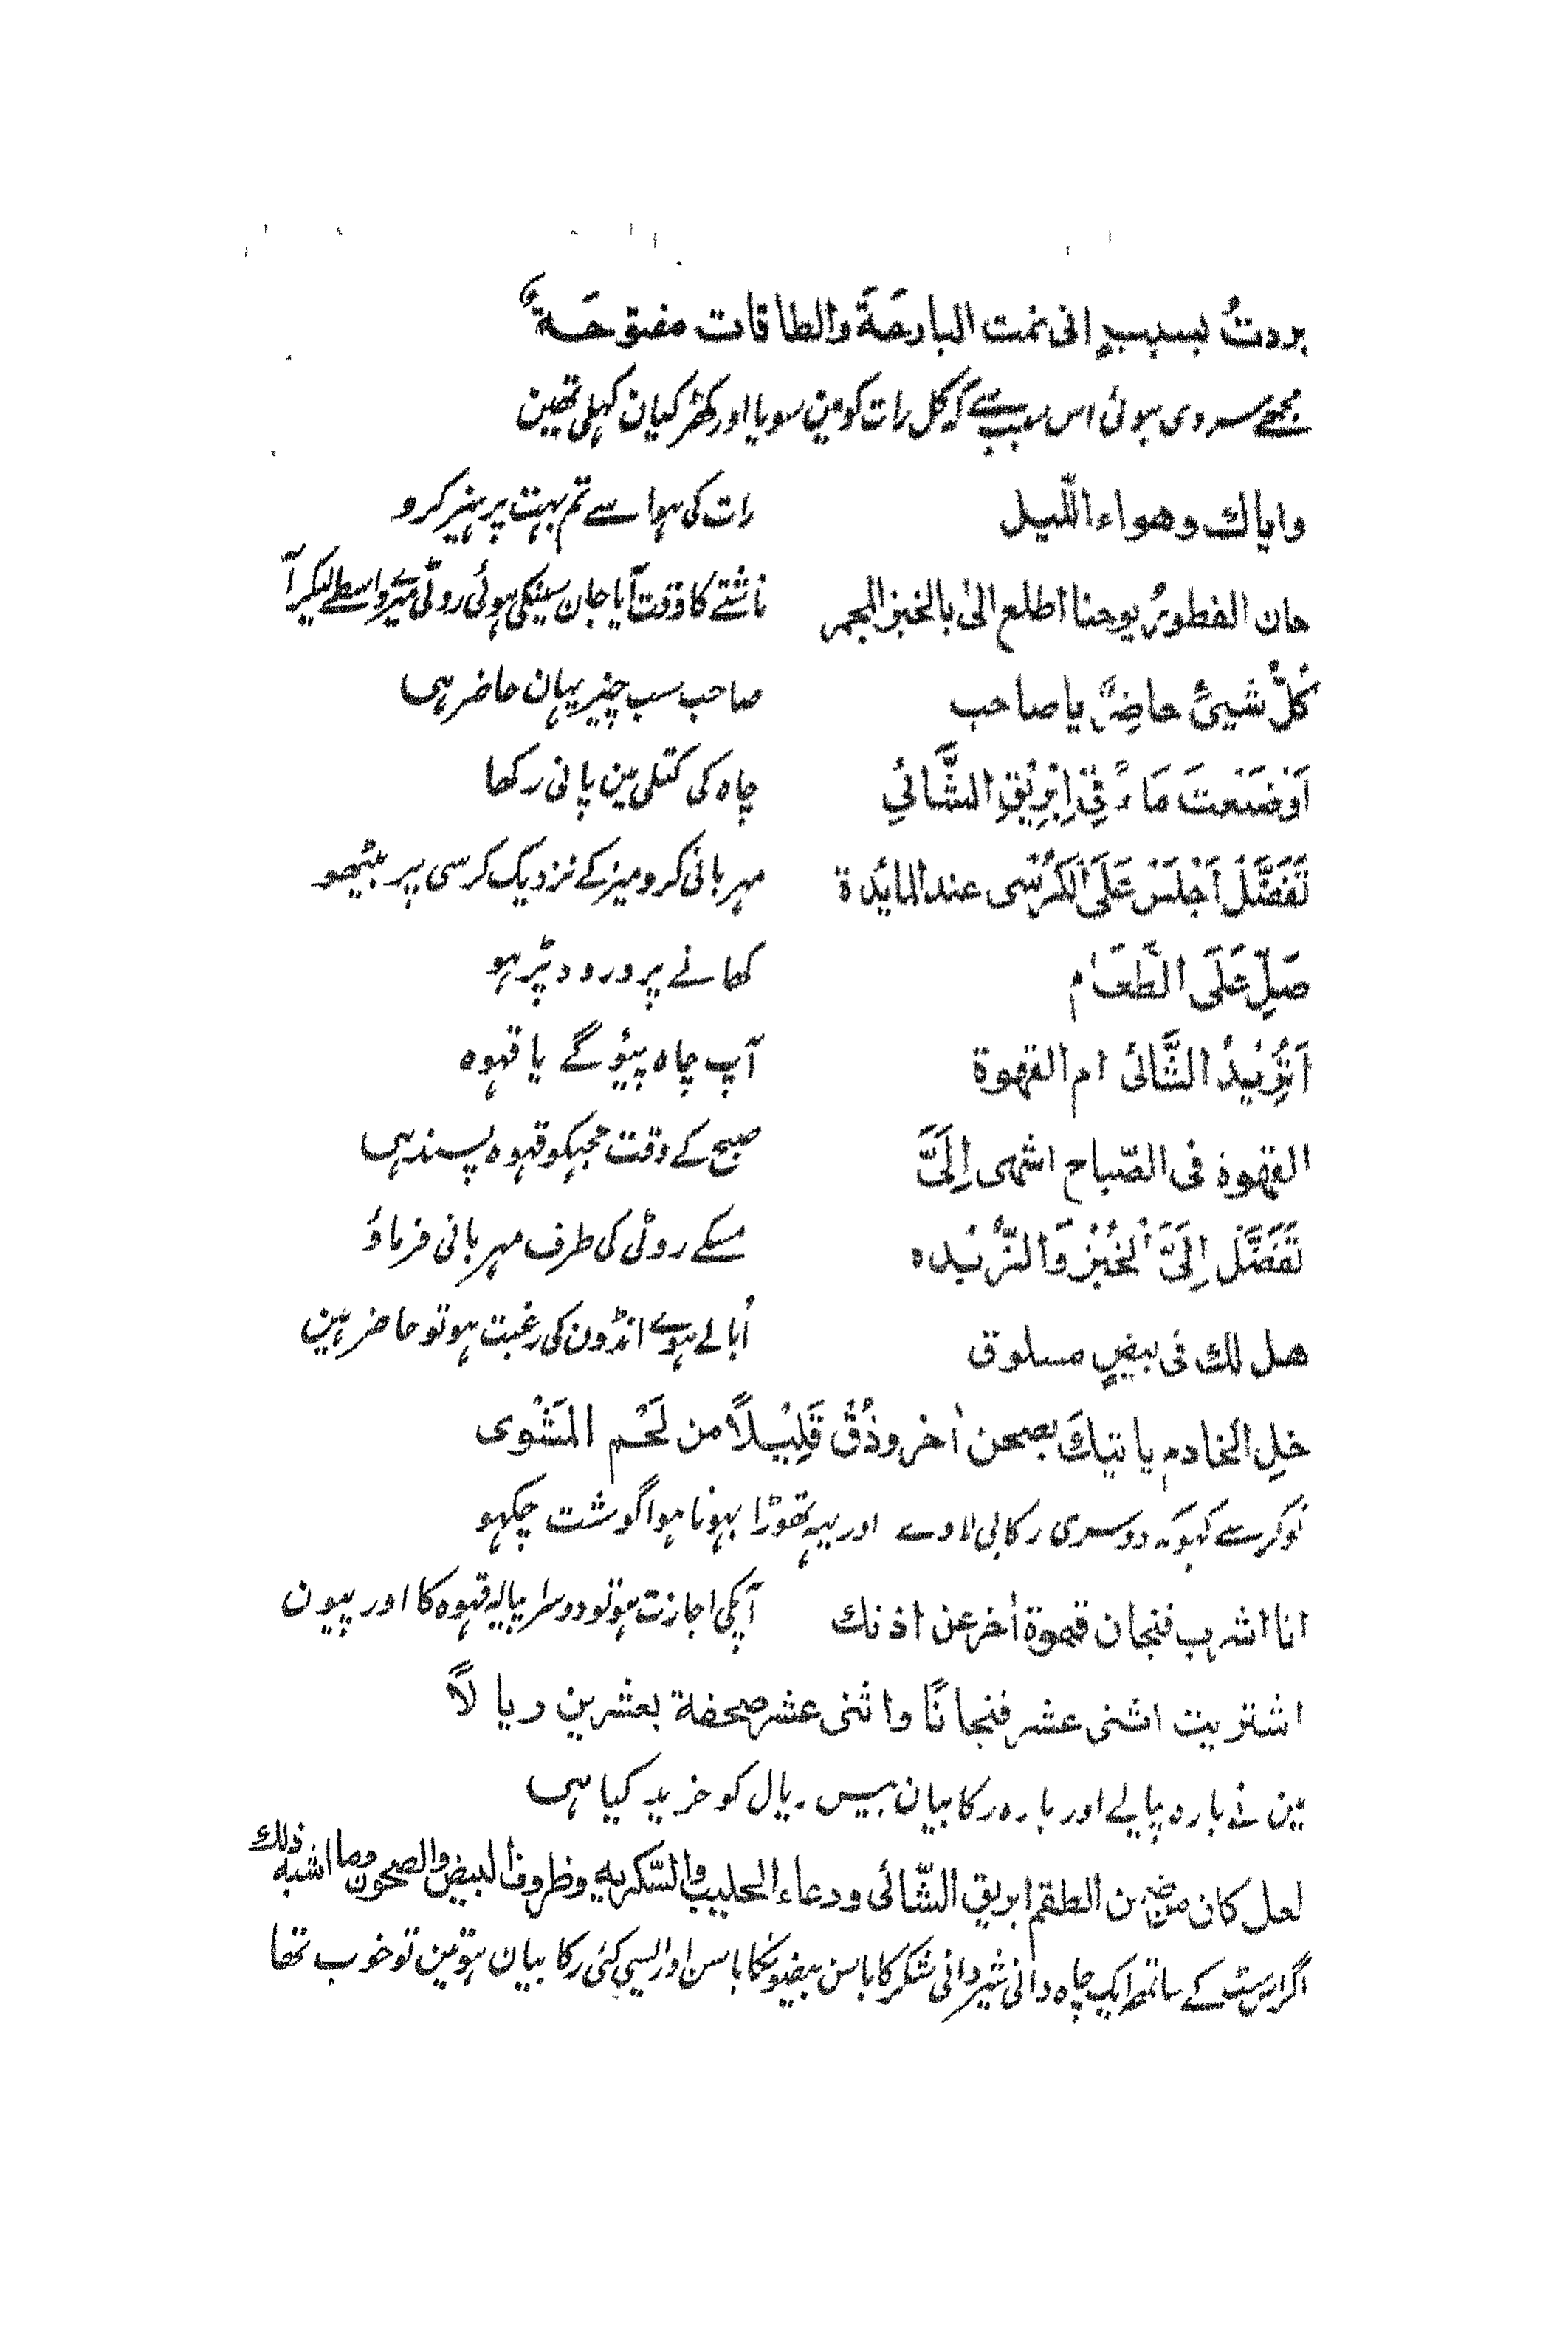 بردتُ بسببِ انی نمت البارحَةَ والطاقات مفتوحَةٌ
مجھے سردی ہوئی اس سبب سے کہ کل رات کو مین سویا اور کھڑکیان کہلی تھین
وایاك وهواء اللّیل رات کی ہوا سے تم بہت پرہیز کرو
حان الفطورُ یوحنا اطلع الیٰ بالخبز المجمر ناشتے کا وقت آیا جان سینکی ہوئی روٹی میرے واسطے لیکر آ
کُلّ شیئ حاضِرٌ یا صاحب صاحب سب چیز یہان حاضر ہی
اَوَضَعتَ مَاءً فِی اِبْرِیْقِ الشَّائیِ چاہ کی کتلی مین پانی رکھا
تَفَضَّلْ اَجْلَسْ عَلَی الْکُرْسی عند المائدة مہربانی کرو میز کے نزدیک کرسی پر بیٹھو
صَلِّ عَلَی الطَّعَام کھانے پر درود پڑہو
اَتُرِیْدُ الشَّائی ام القهوة آپ چاہ پیؤ گے یا قہوہ
القهوة فی الصّباح اشهی اِلَیَّ صبح کے وقت مجہکو قہوہ پسند ہی
تَفَضَّلْ اِلَیَّ الْخُبْزْ وَالزُّبْدہ مسکے روٹی کی طرف مہربانی فرماؤ
هل لك فی بیضٍ مسلوق اُبالے ہوے انڈون کی رغبت ہو تو حاضر ہین
خلِ الخادم یاتیكَ بصحن اٰخر وذُقْ قَلِیْلاً من لَحْم المَشْوی
نوکر سے کہو کہ دوسری رکابی لاوے اور یہہ تھوڑا بہونا ہوا گوشت چکہو
انا اشرب فنجان قهوة اٰخر عن اذنك آپکی اجازت ہو تو دوسرا پیالہ قہوہ کا اور پیون
اشتریت اثنی عشر فنجانًا واثنی عشر صحفة بعشرین ریالاً
مین نے بارہ پیالے اور بارہ رکابیان بیس ریال کو خرید کیا ہی
لعل کان من ضمن الطقم ابریق الشّائی ودعاء الحلیب والسّکریه وظروف البیض والصحون وما اشبه ذلك
اگر اس سٹ کے ساتھ ایک چاہ دانی شیر دانی شکر کا باسن بیضونکا باسن اور ایسی کئی رکابیان ہوتین تو خوب تھا